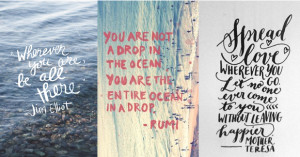 Wherever
you are,
be all
there
Jim Elliot
YOU ARE NOT
A DROP IN
THE OCEAN.
YOU ARE THE
ENTIRE OCEAN
IN A DROP.
- RUMI
Spread
love
WHEREVER YOU
GO.
Let no one
ever come
to you
WITHOUT LEAVING
happier
MOTHER
TERESA